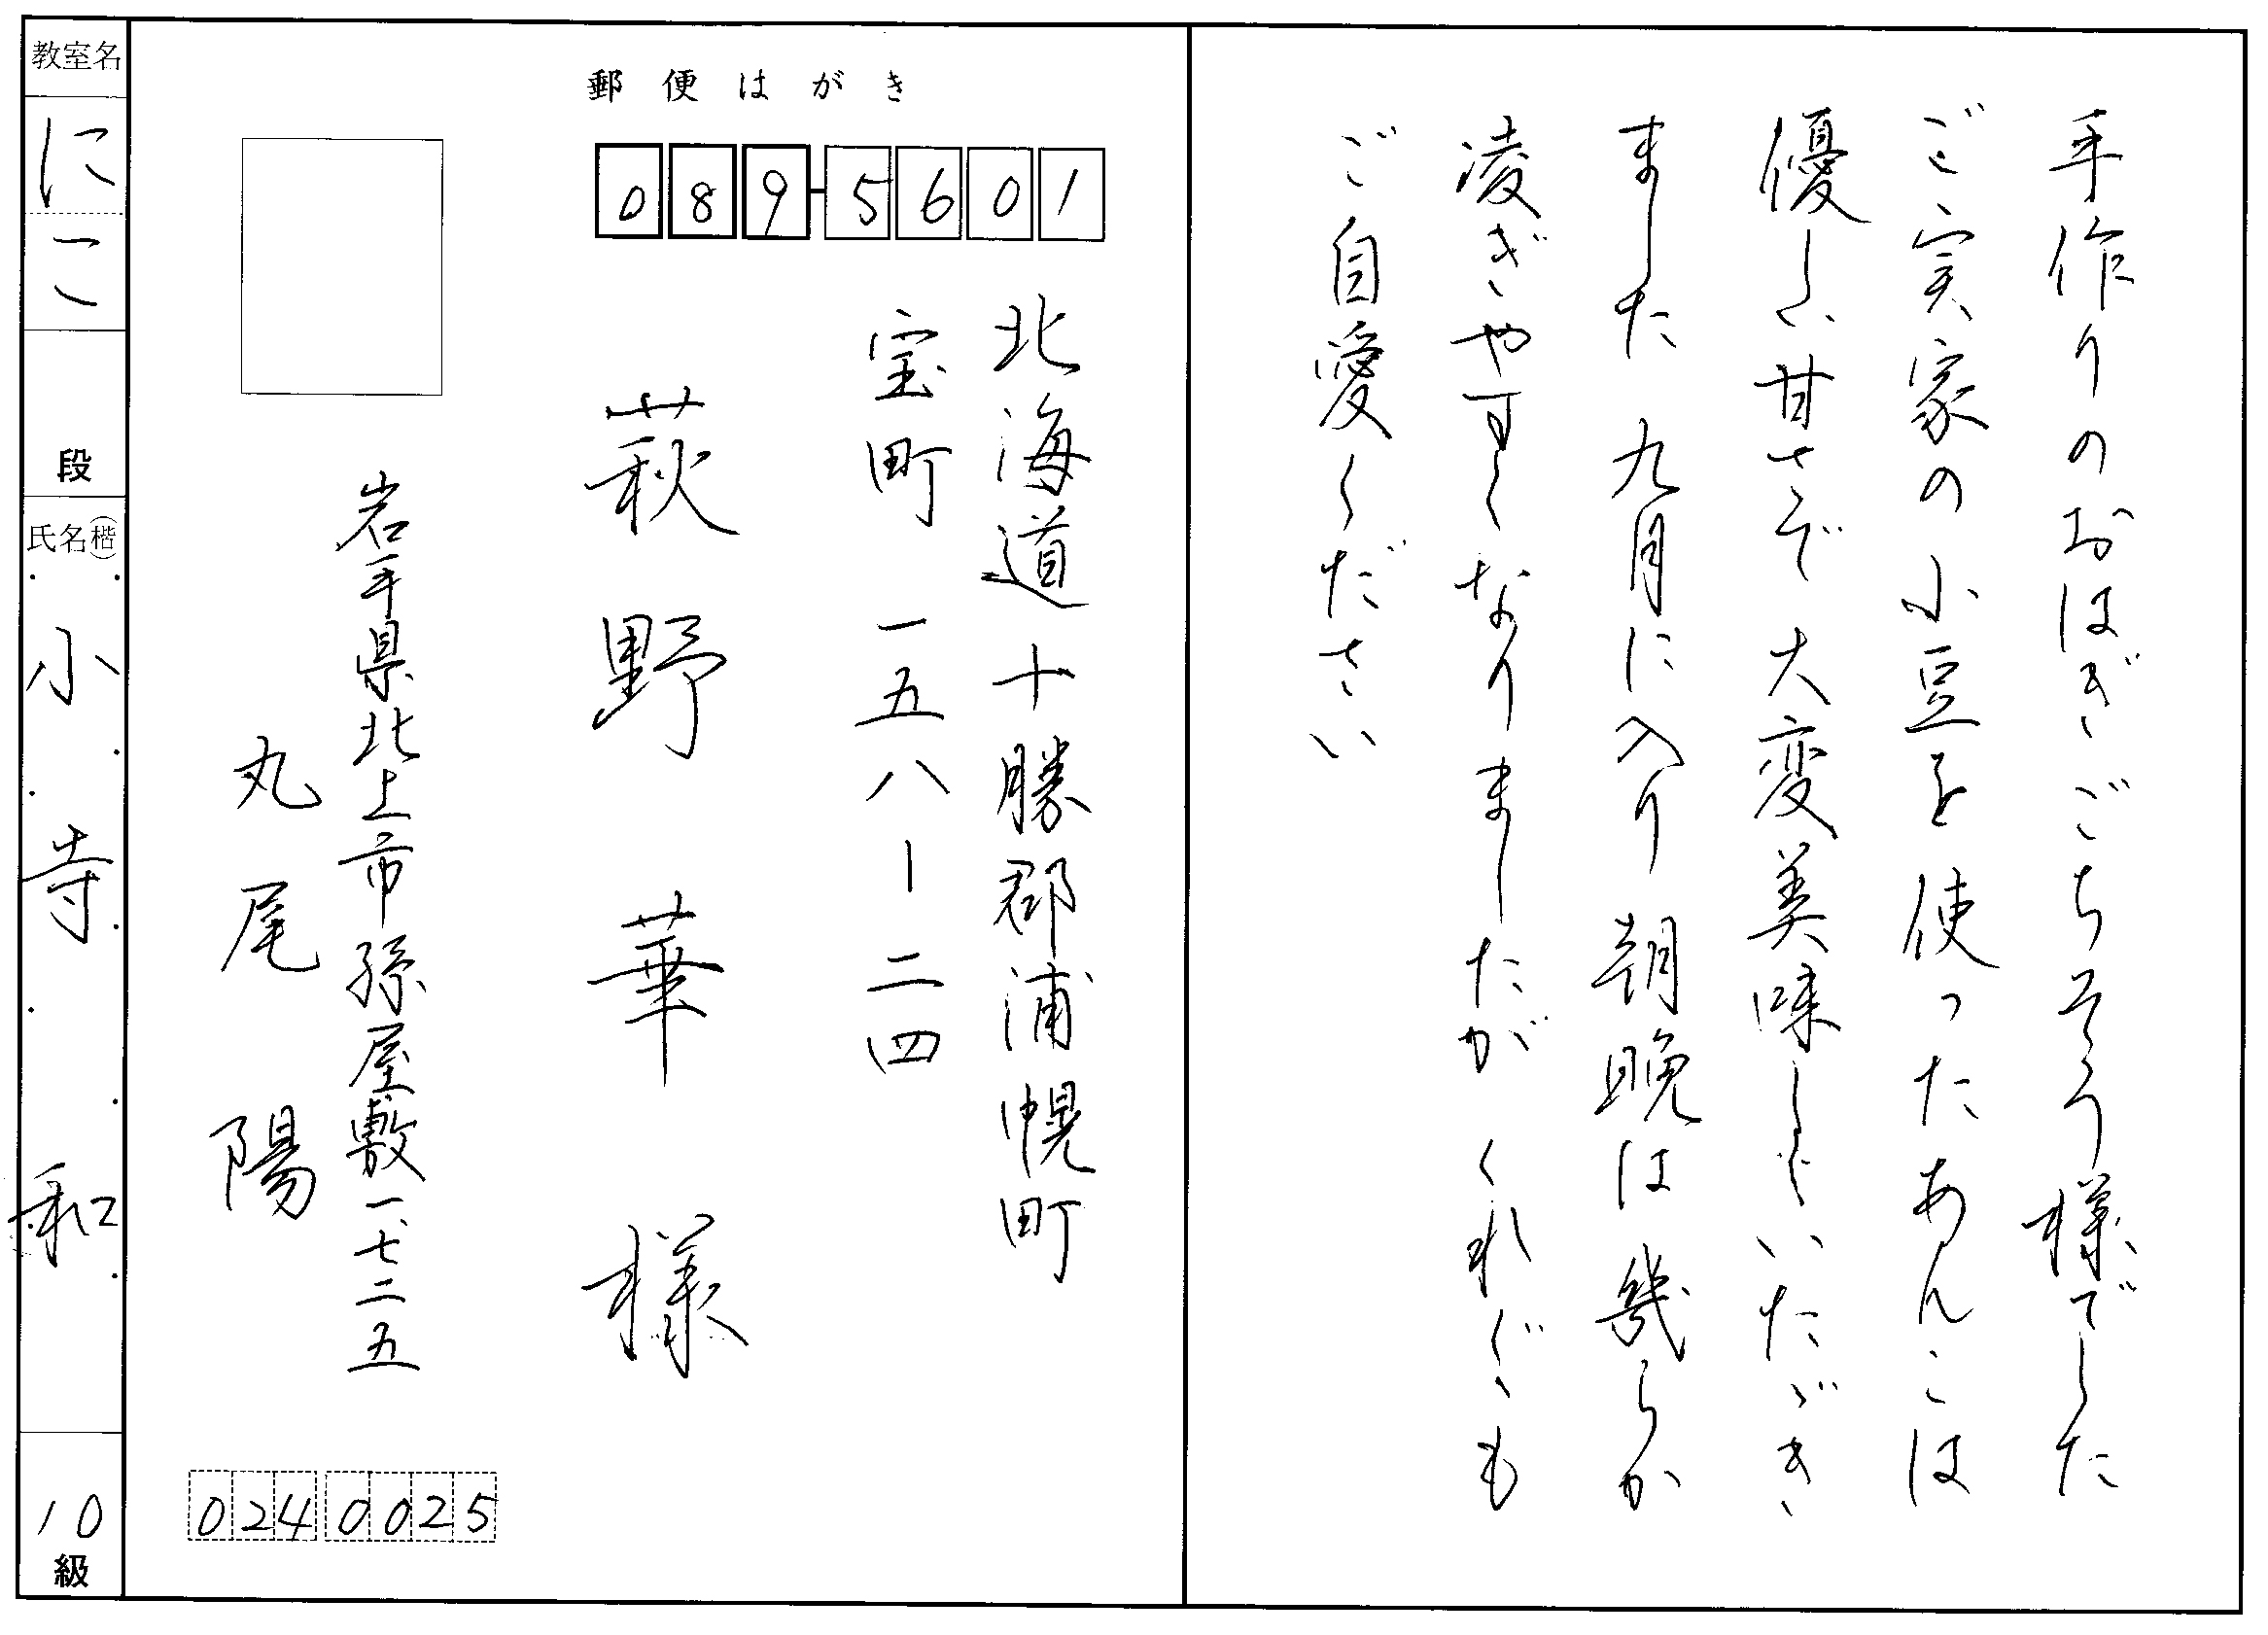 手作りのおはぎごちそう様でした
ご実家の小豆を使ったあんこは
優しい甘さで大変美味しくいただき
ました 九月に入り朝晩は幾らか
凌ぎやすくなりましたがくれぐれも
ご自愛ください
郵便はがき
089-5601
北海道十勝郡浦幌町
宝町一五八-二四
萩野華様
岩手県北上市孫屋敷一七二五
丸尾陽
024 0025
教室名
にこ
段
氏名(楷)
小寺和
10
級